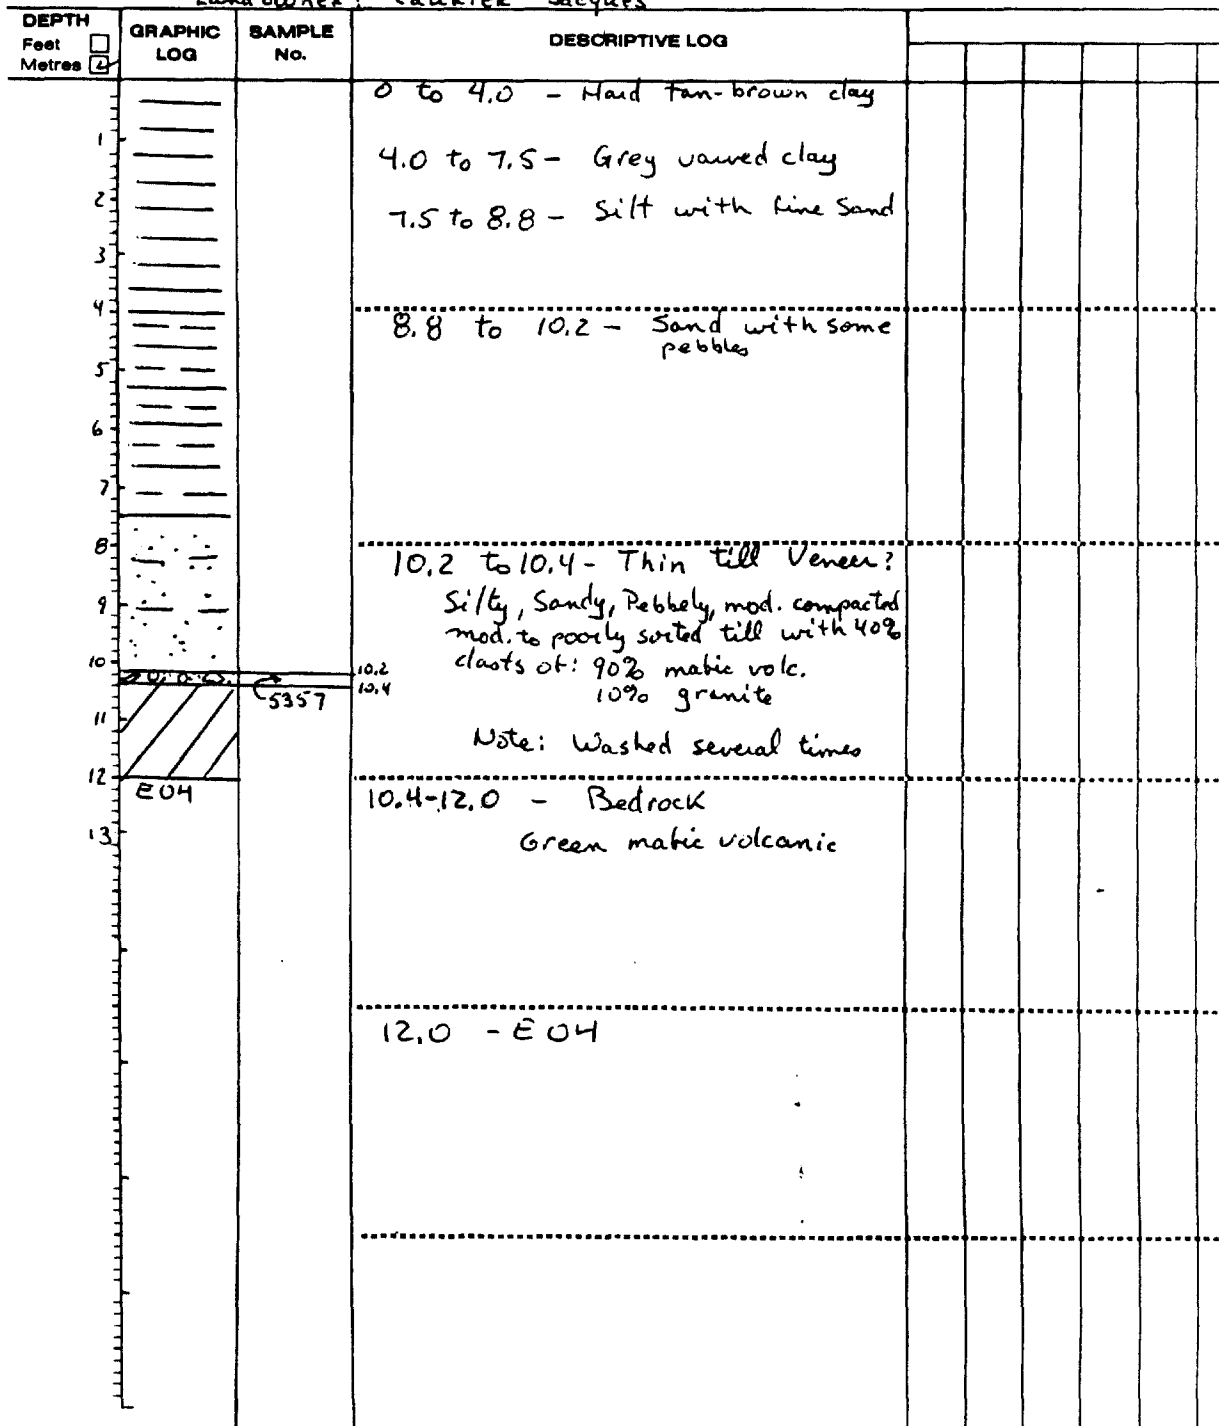 Landowner: Jacques
DEPTH
Feet
Metres
GRAPHIC LOG
SAMPLE No.
DESCRIPTIVE LOG
0 to 4.0 - Hard tan-brown clay
1
4.0 to 7.5 - Grey varved clay
2
7.5 to 8.8 - Silt with fine Sand
3
4
8.8 to 10.2 - Sand with some
pebbles
5
6
7
8
10.2 to 10.4 - Thin till Veneer?
Silty, Sandy, Pebbely, mod. compacted
9
mod. to poorly sorted till with 40%
10
10.2
clasts of: 90% mafic volc.
10.4
5357
10% granite
11
Note: Washed several times
12
EOH
10.4-12.0 - Bedrock
13
Green mafic volcanic
12.0 - EOH